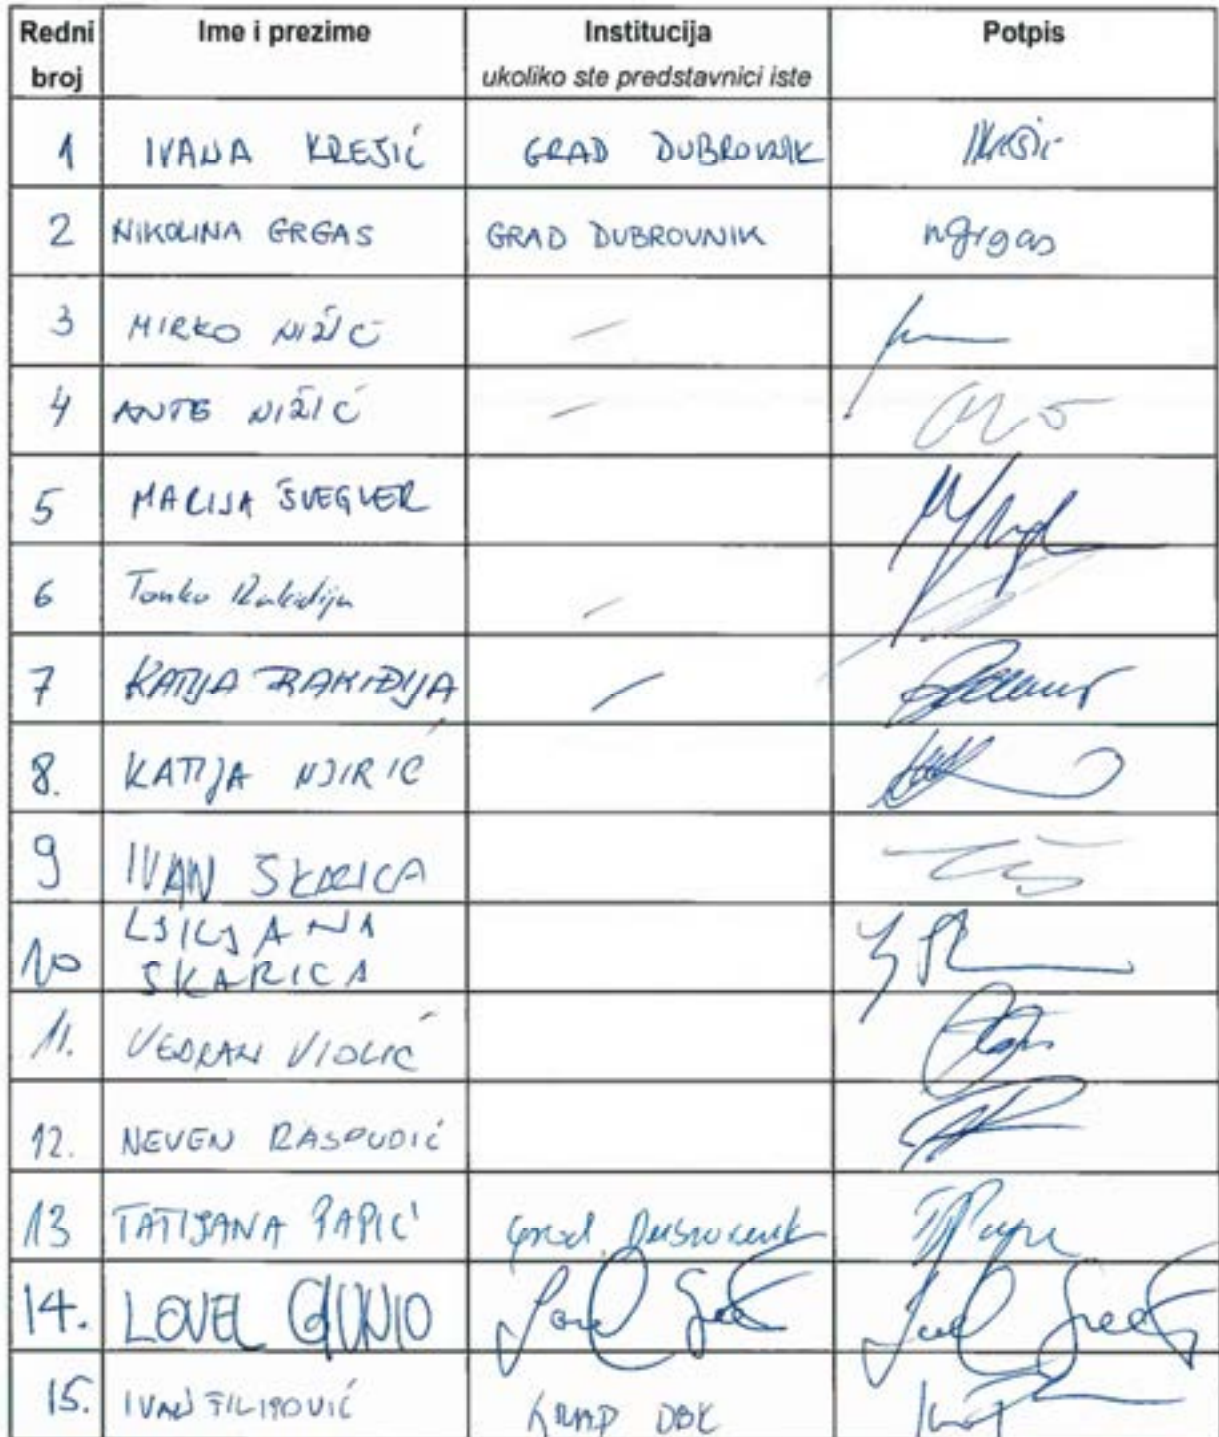 Redni broj Ime i prezime Institucija Potpis
ukoliko ste predstavnici iste
1 IVANA KREJIĆ GRAD DUBROVNIK
2 NIKOLINA GRGAS GRAD DUBROVNIK ngrgas
3 MIRKO NIŽIĆ /
4 ANTE NIŽIĆ /
5 MARIJA ŠVEGLER
6 Tonko Rakidija /
7 KATIJA RAKIDIJA /
8. KATIJA NJIRIĆ
9 IVAN SKARICA
10 LJILJANA
SKARICA
11. VEDRAN VIOLIĆ
12. NEVEN RASPUDIĆ
13 TATIJANA PAPIĆ Grad Dubrovnik
14. LOVEL GIUNIO
15. IVAN FILIPOVIĆ GRAD DBK